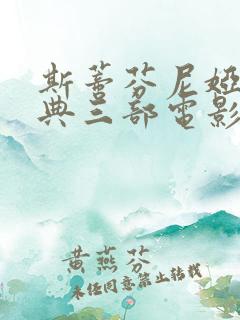 斯蒂芬尼婭
典三部電影
黄燕芬
未经同意禁止转载